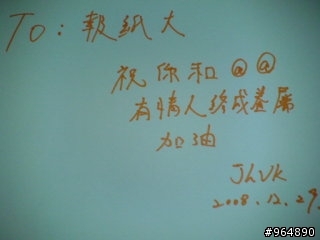 To: 報紙大
祝你和@@
有情人終成眷屬
加油
JLVK
2008.12.29.
#964890